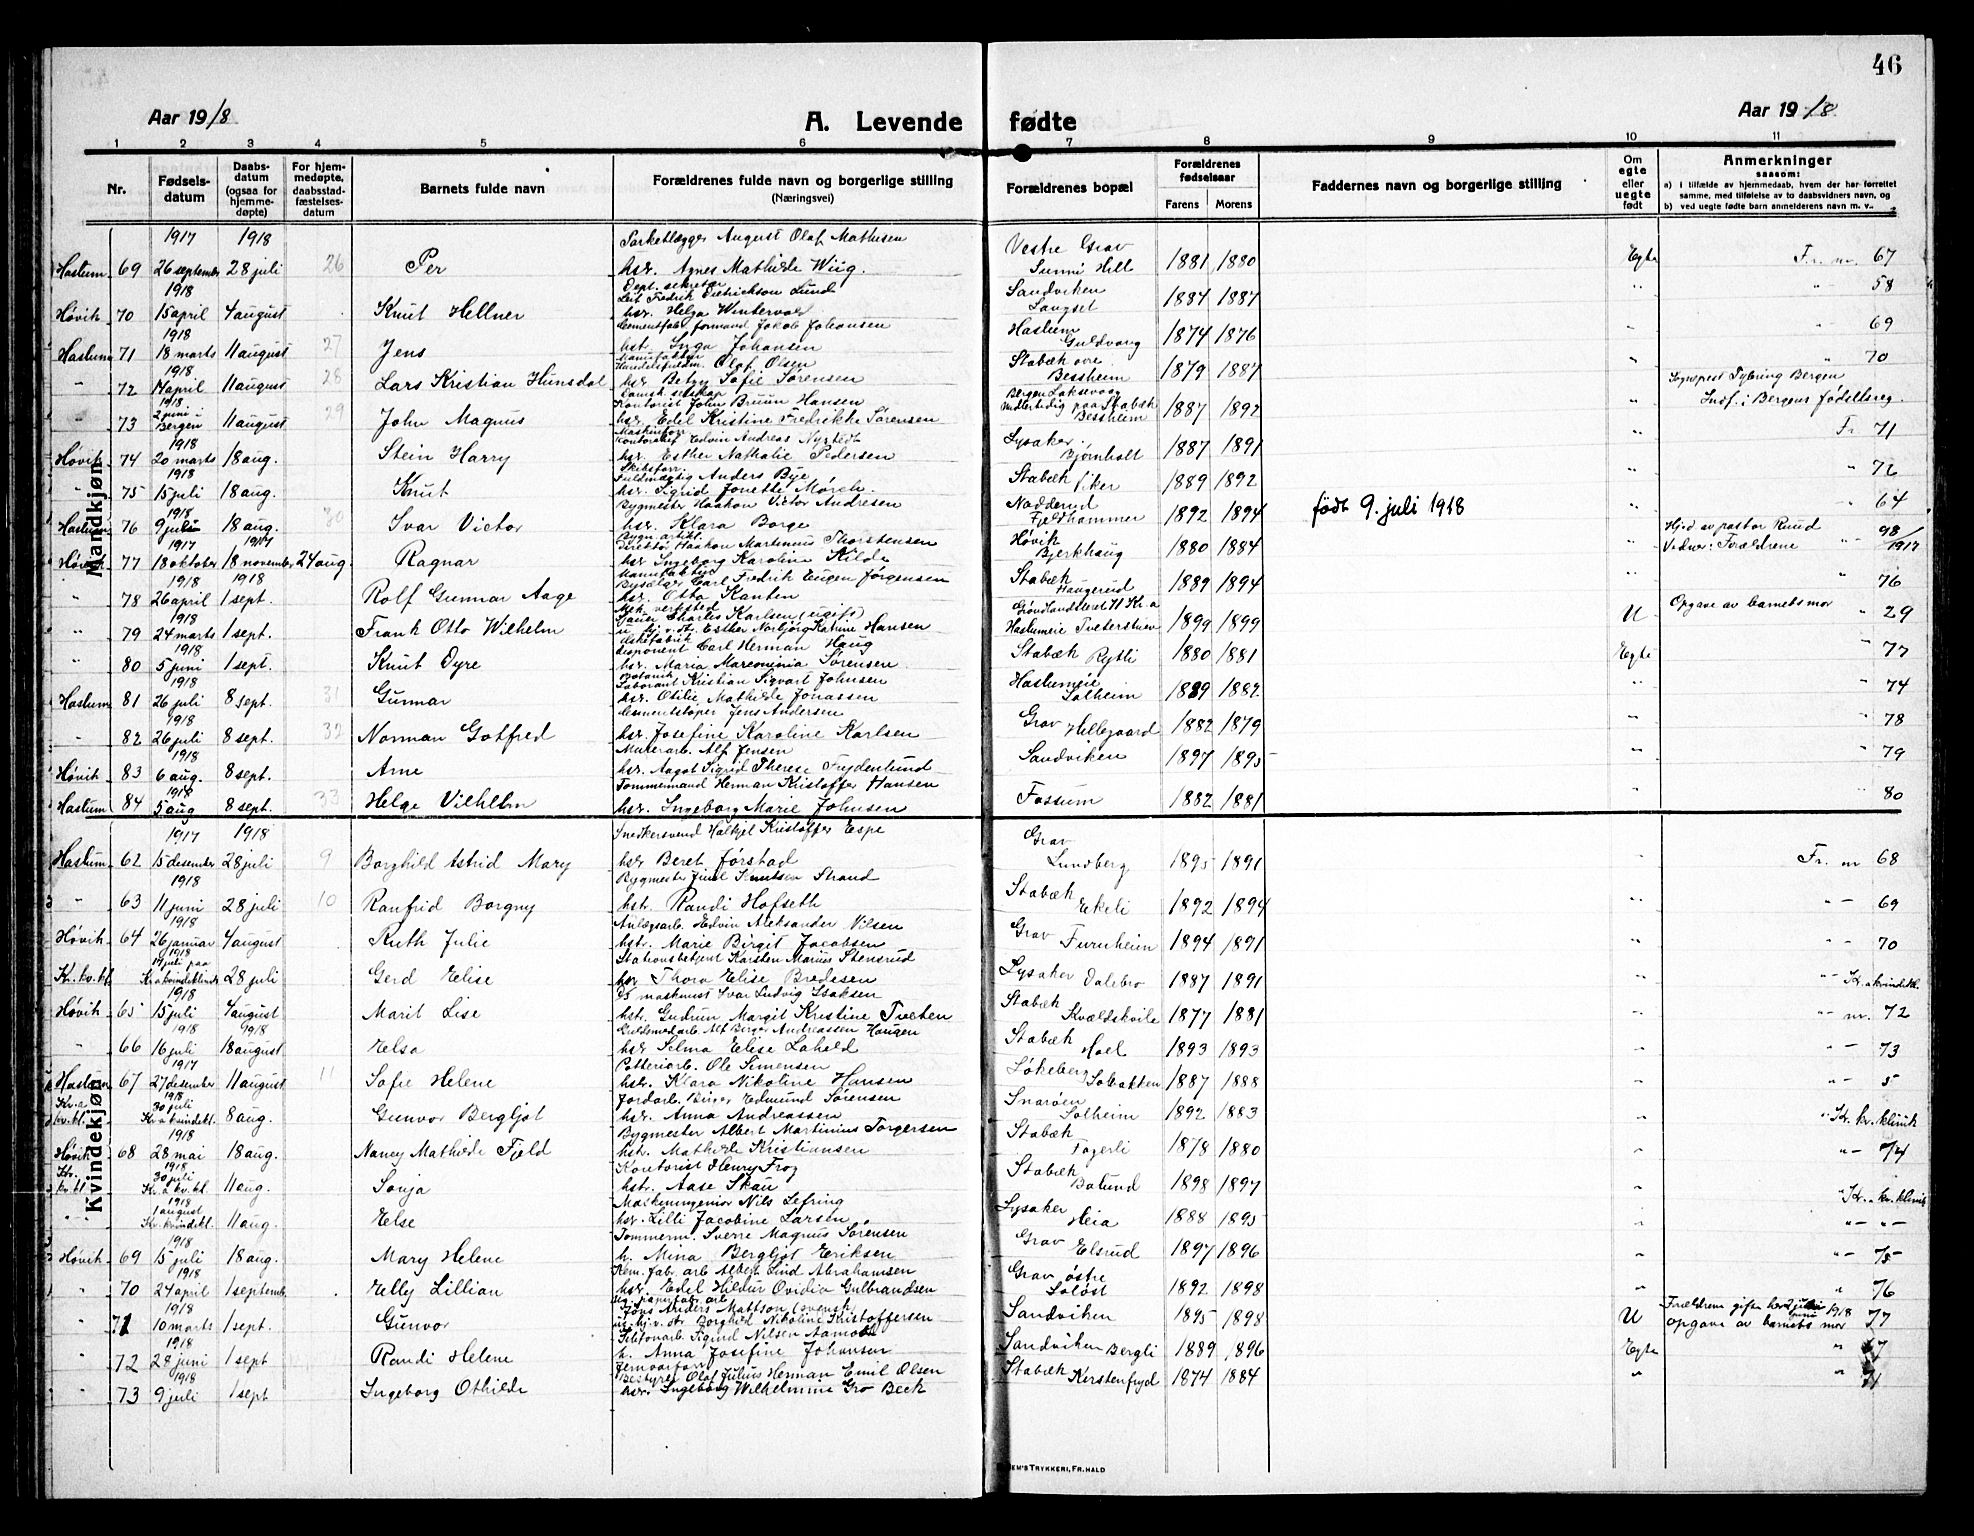 46
Aar 1918
A. Levende fødte
Aar 1918
1 2 3 4 5 6 7 8 9 10 11
Nr. Fødselsdatum Daabsdatum (ogsaa for hjemmedøpte) For hjemmedøpte, daabsstadfæstelsesdatum Barnets fulde navn Forældrenes fulde navn og borgerlige stilling (Næringsvei) Forældrenes bopæl Forældrenes fødselsaar Farens Morens Faddernes navn og borgerlige stilling Om egte eller uegte født Anmerkninger saasom:
a) i tilfælde av hjemmedaab, hvem der har forrettet samme, med tilføielse av to daabsvidners navn, og
b) ved uegte fødte barn anmelderens navn m. v..
Mandkjøn
1917 1918 Parketlægger August Olaf Mathisen Vestre Grav
Haslum 69 26 september 28 juli 26 Per hst. Agnes Mathilde Wiig. 1881 1880 Egte Fr. nr. 67
1918 Fredrik Dietrickson Lund Sandviken
Høvik 70 15 april 4 august Knut Hellner hst. Helga 1884 1887 " " 58
1918 Cementfab. formand Jakob Johansen Haslum
Haslum 71 18 marts 11 august 27 Jens hst. Inga Johansen Guldvang 1874 1876 " " 69
1918 Olaf Olsen Stabæk øvre
" 72 11 august 28 Lars Kristian Hunsdal hst. Betzy Sofie Sørensen Bessheim 1879 1887 " " 70
1918 Kontorist John Bruun Hansen Bergen Laksevaag Midlertidig paa Stabæk
" 73 2 juni i Bergen 11 august 29 John Magnus hst. Edel Kristine Fredrikke Sørensen Bessheim 1887 1892 " Indf. i Bergens Fødselsreg.
1918 Edvin Andreas Nystedt Lysaker
Høvik 74 20 marts 18 aug. Stein Harry hst. Esther Nathalie Pedersen Bjørnholt 1887 1891 " Fr 71
1918 Fuldmægtig Anders Bye Stabæk
" 75 15 juli 18 aug. Knut hst. Sigrid Jonette Mørch. 1889 1892 " " 72
1918 Bygmester Haakon Victor Andresen Nadderud
Haslum 76 9 juli 18 aug. 30 Ivar Victor hst. Klara Borge Fjeldhammer 1892 1894 født 9. juli 1918 " " 64
1917 1917 Direktør Haakon Martinius Thorstensen Høvik
Høvik 77 18 oktober 18 november 24 aug. Ragnar hst. Ingeborg Karoline Kilde Bjerkhaug 1880 1884 " Hjd av pastor Ruud Vidner: Forældrene " 98/1917
1918 1918 Carl Fredrik Eugen Jørgensen Stabæk
" 78 26 april 1 sept. Rolf Gunnar Aage hst. Otta Kanten Haugerud 1889 1894 " " 76
1918 Charles Karlsen (ugift)
" 79 24 marts 1 sept. Frank Otto Wilhelm Esther Norbjørg Katrine Hansen 1899 1899 U Opgave av barnets mor " 29
1918 Disponent Carl Herman Haug
" 80 5 juni 1 sept. Knut Dyre hst. Maria Sørensen Stabæk 1880 1881 Egte " 77
1918 Laborant Kristian Sigvart Johnsen
Haslum 81 26 juli 8 sept. 31 Gunnar hst. Otilie Mathilde Jonassen Solheim 1889 1882 " " 74
1918 Cementstøper Jens Andersen Grav
" 82 26 juli 8 sept. 32 Norman Gotfred hst. Josefine Karoline Karlsen 1882 1879 " " 78
1918 Murerarb. Alf Jensen
Høvik 83 6 aug. 8 sept. Arne hst. Aagot Sigrid Therese Frydenlund Sandviken 1897 1895 " " 79
1918 Tømmermand Herman Kristoffer Hansen
Haslum 84 5 aug 8 sept. 33 Helge Vilhelm hst. Ingeborg Marie Johnsen Fossum 1882 1881 " " 80
Kvindekjøn
1917 1918 Snedkersvend Kristoffer Espe Grav
Haslum 62 15 desember 28 juli 9 Borghild Astrid Mary hst. Beret Jørstad Lundberg 1895 1891 " Fr. nr 68
1918 Bygmester Emil Knutsen Strand Stabæk
" 63 11 juni 28 juli 10 Ranfrid Borgny hst. Randi Hofseth Ekeli 1892 1894 " " 69
1918 Anlægsarb. Edvin Aleksander Nilsen Grav
Høvik 64 26 januar 4 august Ruth Julie hst. Marie Birgit Jacobsen Furuheim 1894 1891 " " 70
1918 Stationsbetjent Karsten Marius Stensrud
Kr. kv. kl. juli paa Kr.a kvindeklinik 28 juli Gerd Elise hst. Thora Elise Bredesen Lysaker Dalebro 1887 1891 " " Kr.a kvindekl.
1918 maskinist Ivar Ludvig Isaksen Stabæk
Høvik 65 15 juli 4 august Marit Lise hst. Gudrun Margit Kristine Tveten Kvældshvile 1877 1881 " " nr. 72
1918 1918 Guldsmedarb. Alf Birger Andreassen Haugen Stabæk
" 66 16 juli 18 august Elsa hst. Selma Elise 1893 1893 " " 73
1917 Potteriarb. Ole Simensen Løkeberg
Haslum 67 27 desember 11 august 11 Sofie Helene hst. Klara Nikoline Hansen Solbakken 1887 1888 " " 5
1918 Jordarb. Birger Edmund Sørensen Snarøen
Kr.a kv. kl. 30 juli Kr.a kvindekl. 8 aug. Gunvor Bergljot hst. Anna Andreassen Solheim 1892 1883 " " Kr. kv. klinik
1918 Bygmester Albert Martinius Torgersen Stabæk
Høvik 68 28 mai 18 aug. Nancy Mathilde Fjeld hst. Mathilde Kristiansen Fagerli 1878 1880 " " 74
1918 Kontorist Henry Frog Stabæk
Kr. kv. kl 30 juli Kr. a kv. kl. 11 aug. Sonja hst. Aase Skau 1898 1897 " " Kr. a kv. klinik
1918 Maskiningeniør Nils Lysaker
" 1 august Kr. kvindekl. 11 aug. Else hst. Lilli Jacobine Larsen Heia 1888 1895 " " "
1918 Tømmerm. Sverre Magnus Sørensen Grav
Høvik 69 15 juli 18 aug. Mary Helene h. Mina Bergljot Eriksen Elsrud 1897 1896 " " 75
1918 Kem. fabr. arb Albert Lind Abrahamsen Grav østre
" 70 24 april 1 septemb. Elly Lillian hst. Edel Hildur Ovidia Gulbrandsen Soløst 1892 1898 " " 76
1918 Jöns Anders Mattson (svensk)
" 71 10 marts 1 sept. Gunvor Borghild Nikoline Kristoffersen Sandviken 1895 1898 U Forældrene gifte 1918 opgave av barnets mor 77
1918 Sigurd Nilsen Aamodt
" 72 28 juni 1 sept Randi Helene h. Anna Josefine Johansen Sandviken Bergli 1889 1896 Egte "
1918 Bestyrer Olaf Julius Herman Emil Olsen
" 73 9 juli 1 sept Ingeborg Othilde hst. Ingeborg Wilhelmine Gro Beck Stabæk Kirstenfryd 1874 1884 " "
EM'S TRYKKERI, FR.HALD